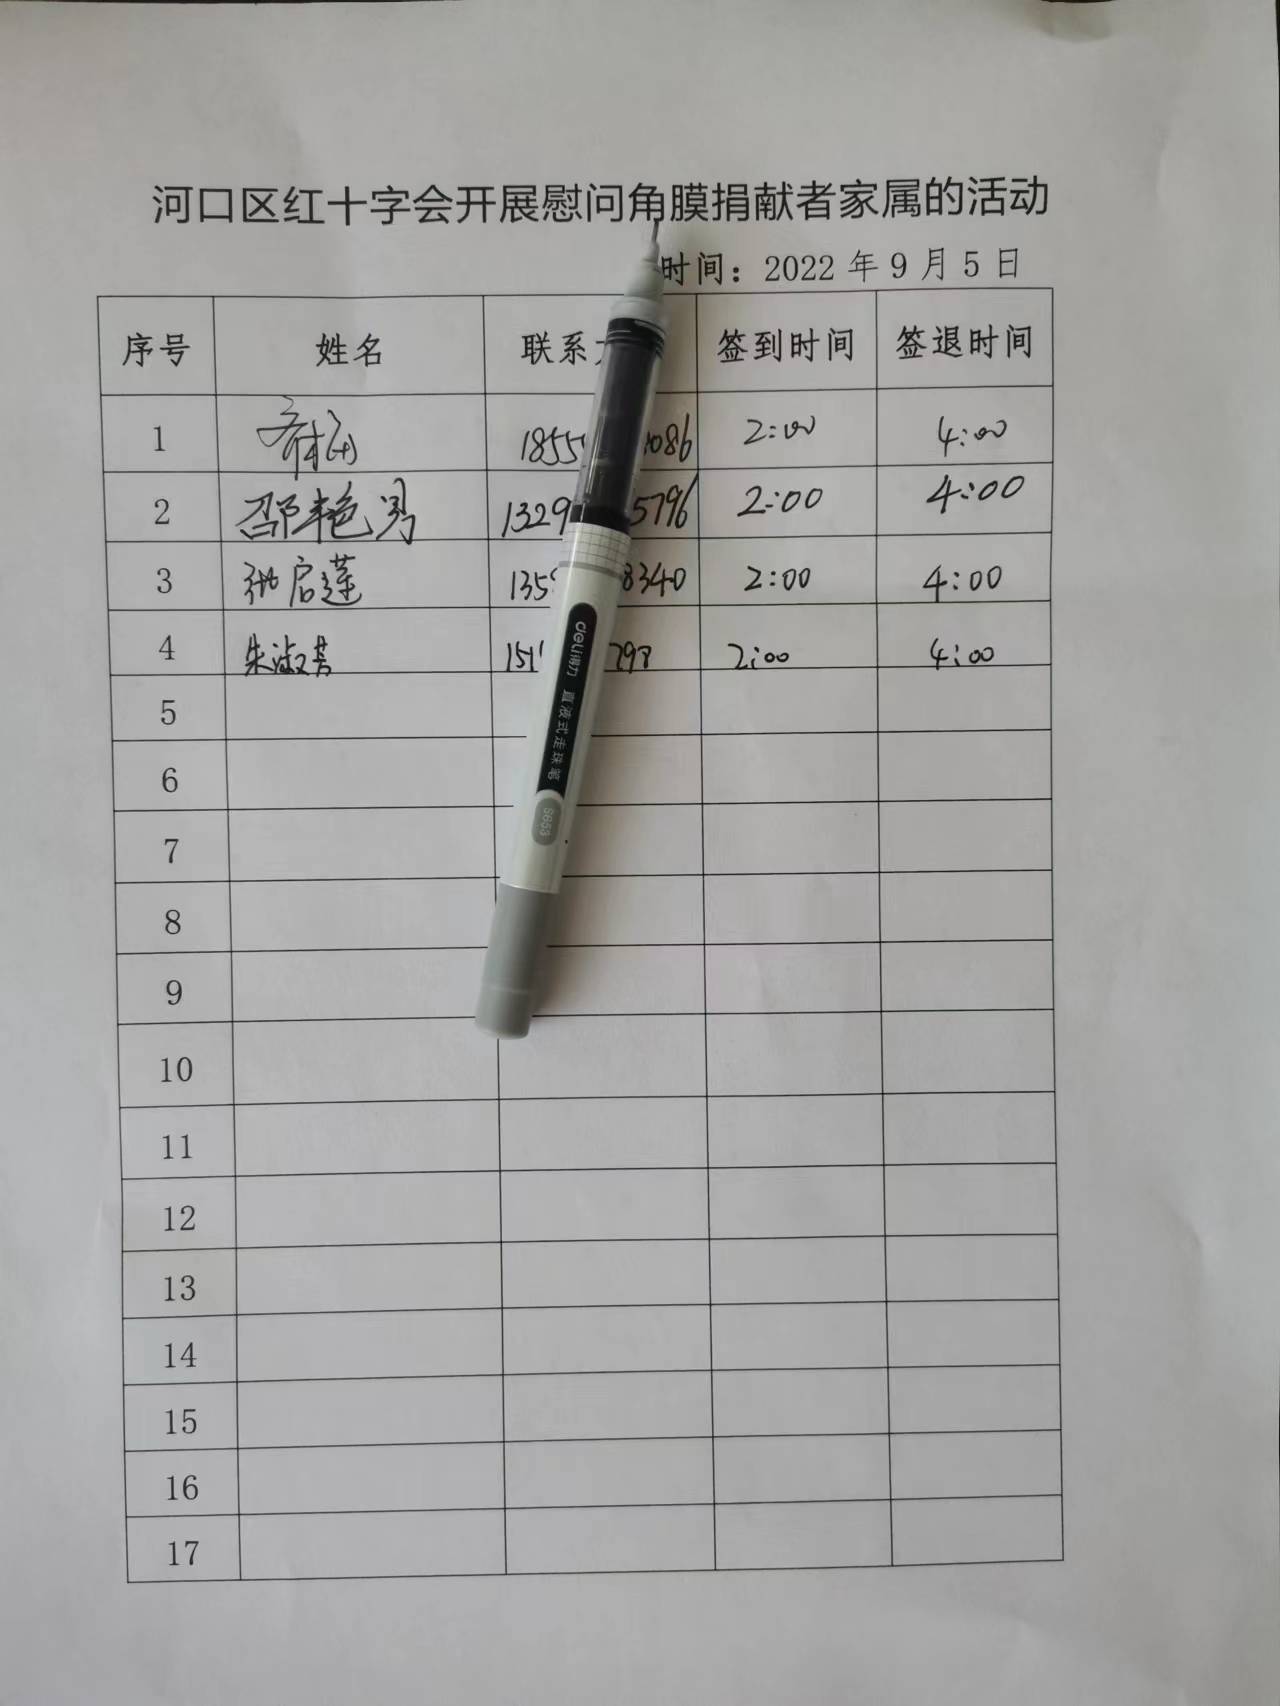 河口区红十字会开展慰问角膜捐献者家属的活动
时间：2022 年 9 月 5 日
序号 姓名 联系 签到时间 签退时间
1 1855 086 2:00 4:00
2 邵艳男 1329 5796 2:00 4:00
3 启莲 135 8340 2:00 4:00
4 朱淑芳 151 798 2:00 4:00
5
6
7
8
9
10
11
12
13
14
15
16
17
deli得力 直液式走珠笔 S653